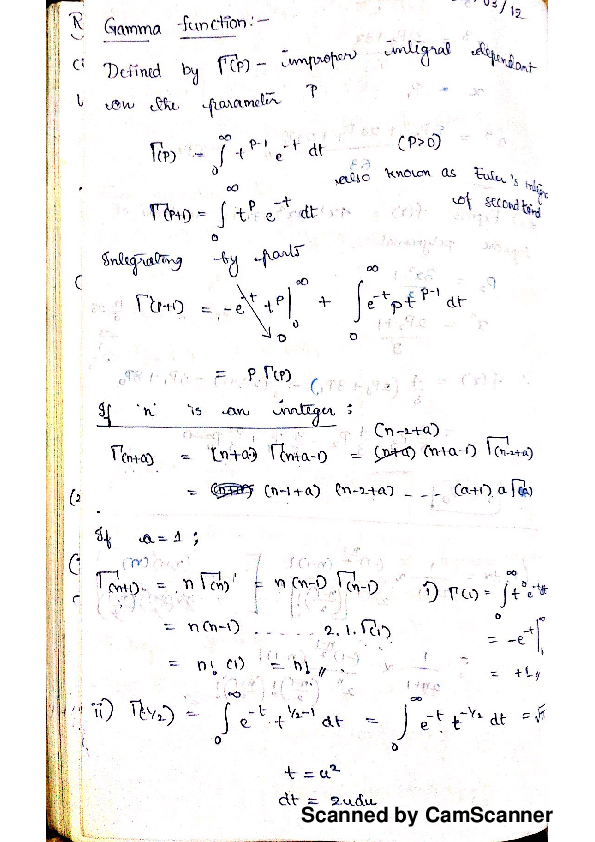 03/12
Gamma function:-
Defined by Γ(P) - improper integral dependant
on the parameter P
Γ(P) = ∫₀^∞ t^{P-1} e^{-t} dt (P>0)
also known as Euler's
of second kind
Γ(P+1) = ∫₀^∞ t^P e^{-t} dt
Integrating by parts
Γ(P+1) = -e^{-t} t^P |₀^∞ + ∫₀^∞ e^{-t} P t^{P-1} dt
0
= P Γ(P)
If 'n' is an innteger :
(n-2+a)
Γ(n+a) = (n+a) Γ(n+a-1) = (n+a-1) Γ(n-2+a)
= (n-1+a) (n-2+a) - - - (a+1) a Γ(a)
If a = 1 ;
Γ(n+1) = n Γ(n) = n(n-1) Γ(n-1) i) Γ(1) = ∫₀^∞ t⁰ e^{-t} dt
= n(n-1) ....... 2.1.Γ(1) = -e^{-t} |₀^∞
= n! (1) = n! = +1
ii) Γ(1/2) = ∫₀^∞ e^{-t} t^{1/2-1} dt = ∫₀^∞ e^{-t} t^{-1/2} dt =
t = u²
dt = 2udu
Scanned by CamScanner